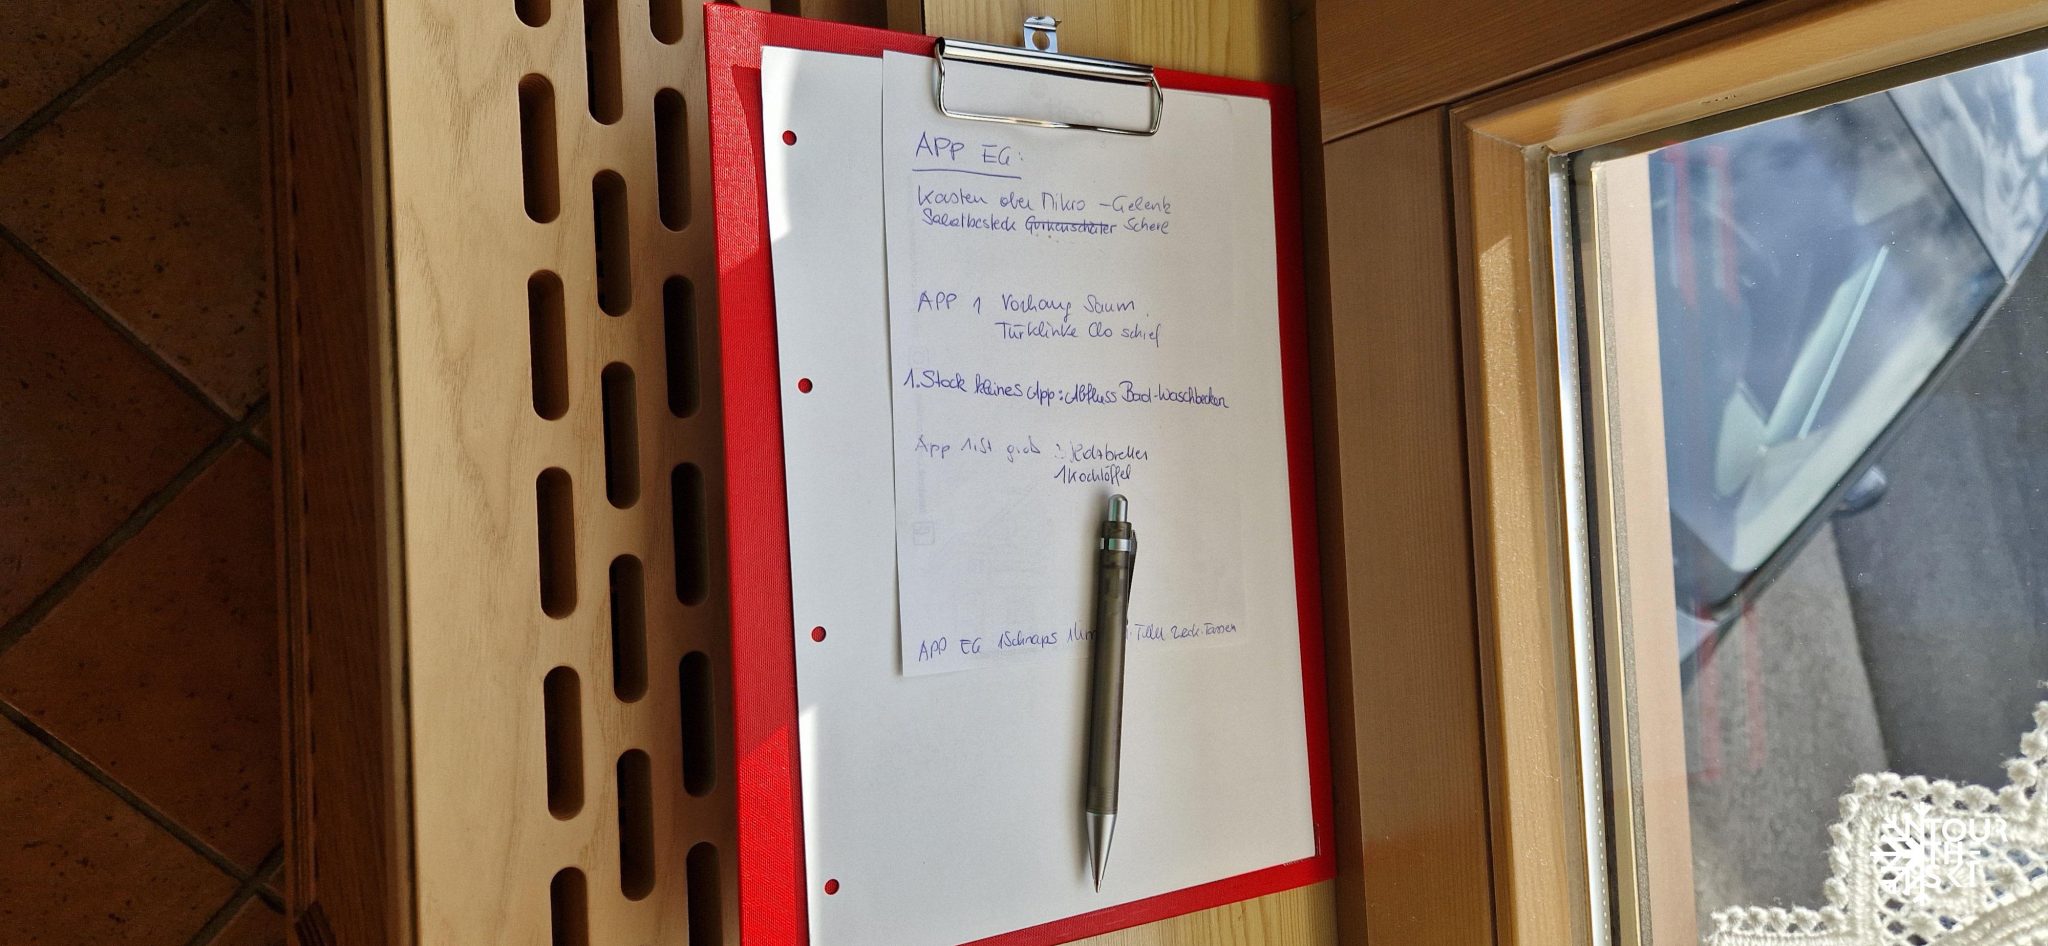 APP EG:
Kasten ober Mikro - Gelenk
Salatbesteck Gurkenschäler Schere
APP 1 Vorhang Saum
Türklinke Clo schief
1. Stock kleines App: Abfluss Bad-Waschbecken
App 1.St groß :
1 Kochlöffel
APP EG 1 Schnaps Tassen
NTOUR
SKI